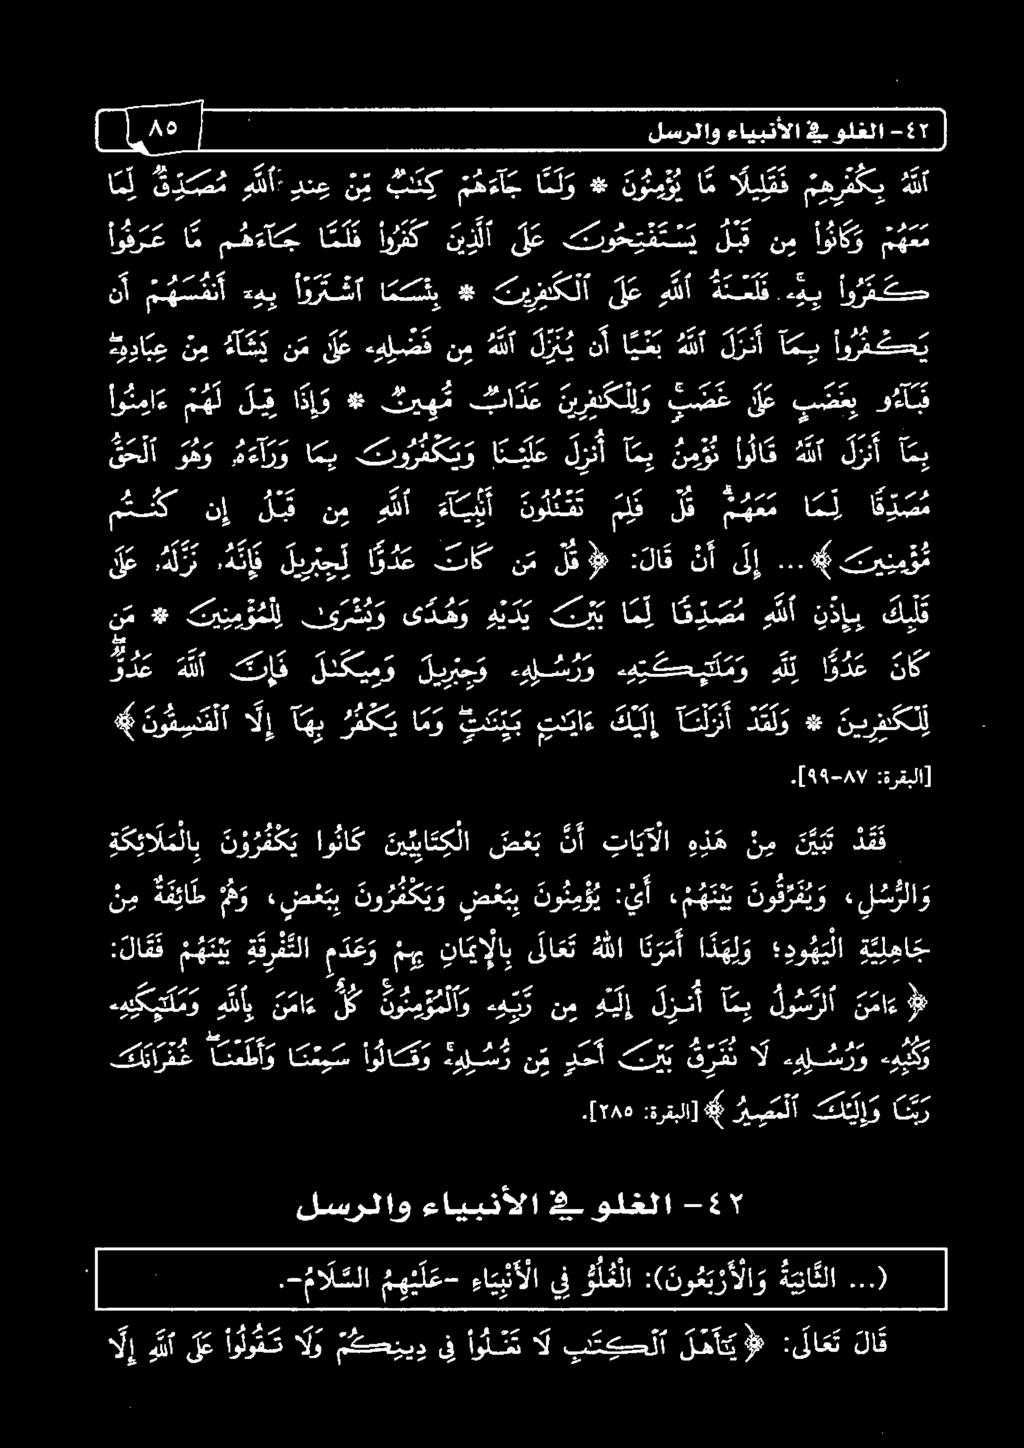 ٤٢- الغلو في الأنبياء والرسل ٨٥
ٱللَّهُ بِكُفْرِهِمْ فَقَلِيلًا مَّا يُؤْمِنُونَ * وَلَمَّا جَآءَهُمْ كِتَٰبٌ مِّنْ عِندِ ٱللَّهِ مُصَدِّقٌ لِّمَا
مَعَهُمْ وَكَانُوا۟ مِن قَبْلُ يَسْتَفْتِحُونَ عَلَى ٱلَّذِينَ كَفَرُوا۟ فَلَمَّا جَآءَهُم مَّا عَرَفُوا۟
كَفَرُوا۟ بِهِۦ ۚ فَلَعْنَةُ ٱللَّهِ عَلَى ٱلْكَٰفِرِينَ * بِئْسَمَا ٱشْتَرَوْا۟ بِهِۦٓ أَنفُسَهُمْ أَن
يَكْفُرُوا۟ بِمَآ أَنزَلَ ٱللَّهُ بَغْيًا أَن يُنَزِّلَ ٱللَّهُ مِن فَضْلِهِۦ عَلَىٰ مَن يَشَآءُ مِنْ عِبَادِهِۦ ۖ
فَبَآءُو بِغَضَبٍ عَلَىٰ غَضَبٍ ۚ وَلِلْكَٰفِرِينَ عَذَابٌ مُّهِينٌ * وَإِذَا قِيلَ لَهُمْ ءَامِنُوا۟
بِمَآ أَنزَلَ ٱللَّهُ قَالُوا۟ نُؤْمِنُ بِمَآ أُنزِلَ عَلَيْنَا وَيَكْفُرُونَ بِمَا وَرَآءَهُۥ وَهُوَ ٱلْحَقُّ
مُصَدِّقًا لِّمَا مَعَهُمْ ۗ قُلْ فَلِمَ تَقْتُلُونَ أَنۢبِيَآءَ ٱللَّهِ مِن قَبْلُ إِن كُنتُم
مُّؤْمِنِينَ ﴾ ... إِلَى أَنْ قَالَ: ﴿ قُلْ مَن كَانَ عَدُوًّا لِّجِبْرِيلَ فَإِنَّهُۥ نَزَّلَهُۥ عَلَىٰ
قَلْبِكَ بِإِذْنِ ٱللَّهِ مُصَدِّقًا لِّمَا بَيْنَ يَدَيْهِ وَهُدًى وَبُشْرَىٰ لِلْمُؤْمِنِينَ * مَن
كَانَ عَدُوًّا لِّلَّهِ وَمَلَٰٓئِكَتِهِۦ وَرُسُلِهِۦ وَجِبْرِيلَ وَمِيكَىٰلَ فَإِنَّ ٱللَّهَ عَدُوٌّ
لِّلْكَٰفِرِينَ * وَلَقَدْ أَنزَلْنَآ إِلَيْكَ ءَايَٰتٍۭ بَيِّنَٰتٍ ۖ وَمَا يَكْفُرُ بِهَآ إِلَّا ٱلْفَٰسِقُونَ ﴾
[البقرة: ٨٧-٩٩].
فَقَدْ تَبَيَّنَ مِنْ هَذِهِ الآيَاتِ أَنَّ بَعْضَ الْكِتَابِيِّينَ كَانُوا يَكْفُرُونَ بِالْمَلَائِكَةِ
وَالرُّسُلِ، وَيُفَرِّقُونَ بَيْنَهُمْ، أَيْ: يُؤْمِنُونَ بِبَعْضٍ وَيَكْفُرُونَ بِبَعْضٍ، وَهُمْ طَائِفَةٌ مِنْ
جَاهِلِيَّةِ الْيَهُودِ؛ وَلِهَذَا أَمَرَنَا اللهُ تَعَالَى بِالإِيمَانِ بِهِمْ وَعَدَمِ التَّفْرِقَةِ بَيْنَهُمْ فَقَالَ:
﴿ ءَامَنَ ٱلرَّسُولُ بِمَآ أُنزِلَ إِلَيْهِ مِن رَّبِّهِۦ وَٱلْمُؤْمِنُونَ ۚ كُلٌّ ءَامَنَ بِٱللَّهِ وَمَلَٰٓئِكَتِهِۦ
وَكُتُبِهِۦ وَرُسُلِهِۦ لَا نُفَرِّقُ بَيْنَ أَحَدٍ مِّن رُّسُلِهِۦ ۚ وَقَالُوا۟ سَمِعْنَا وَأَطَعْنَا ۖ غُفْرَانَكَ
رَبَّنَا وَإِلَيْكَ ٱلْمَصِيرُ ﴾ [البقرة: ٢٨٥].
٤٢- الغلو في الأنبياء والرسل
(... الثَّانِيَةُ وَالأَرْبَعُونَ): الْغُلُوُّ فِي الأَنْبِيَاءِ -عَلَيْهِمُ السَّلَامُ-.
قَالَ تَعَالَى: ﴿ يَٰٓأَهْلَ ٱلْكِتَٰبِ لَا تَغْلُوا۟ فِى دِينِكُمْ وَلَا تَقُولُوا۟ عَلَى ٱللَّهِ إِلَّا